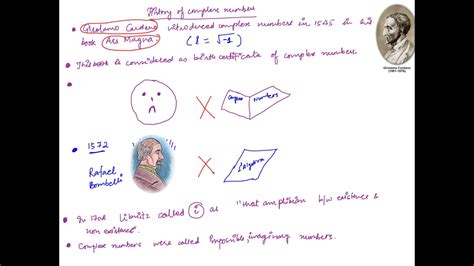 History of complex numbers
Girolamo Cardano introduced complex numbers in 1545 in his
book Ars Magna. (i = √-1)
This book is considered as birth certificate of complex numbers.
Numbers
1572
Rafael
Bombelli
Algebra
In 1702 Libnitz called i as "that amphibian b/w existence &
non existence.
Complex numbers were called Impossible, imaginary numbers.
Girolamo Cardano